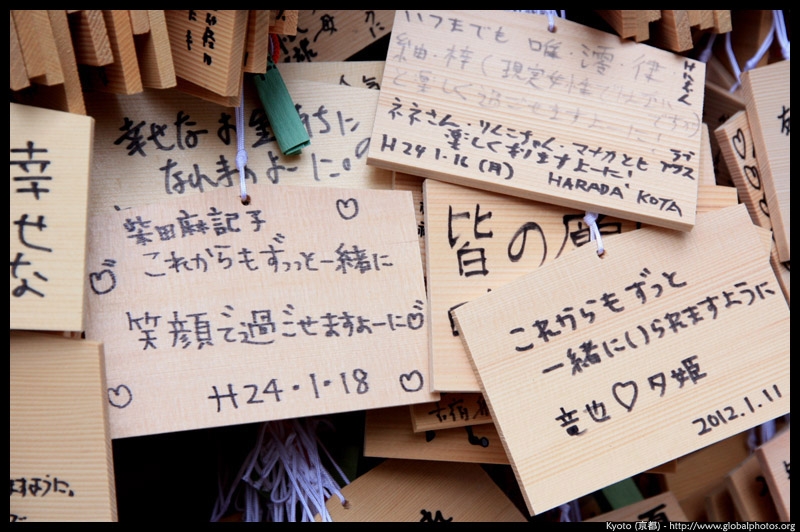 いつまでも 唯・澪・律
紬・梓(現実
と楽しく過ごせますよーに!
ネネさん・りんこちゃん・マナカとも ラブ
楽しくおりますよーに! プラス
H24.1.16(月) HARADA KOTA
幸せなお
になれますよーに。
幸せな
柴田麻記子
これからもずっと一緒に
笑顔で過ごせますよーに
H24・1・18
皆の願
これからもずっと
一緒にいられますように
竜也♡夕姫
2012.1.11
ますように。
Kyoto (京都) - http://www.globalphotos.org